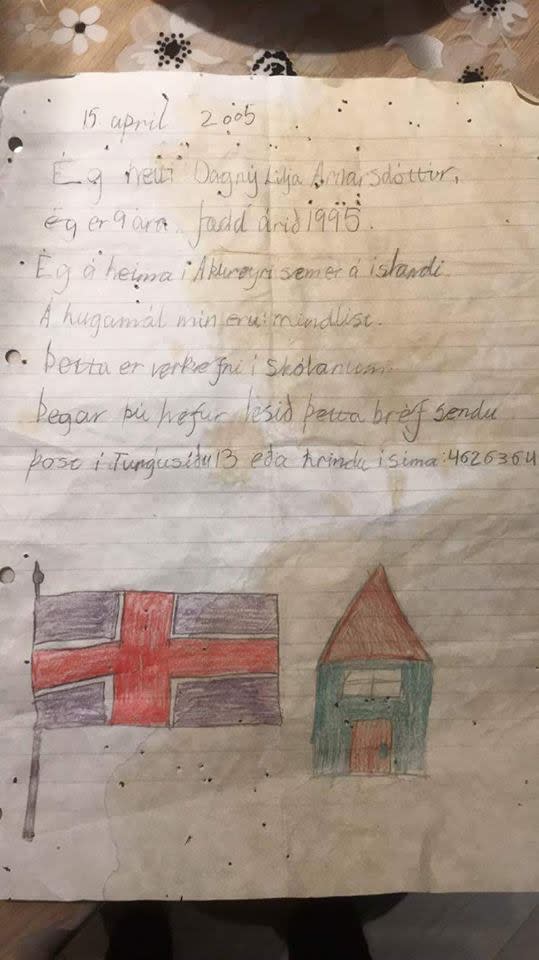 15 april 2005
Ég heiti Dagný Lilja Arnarsdóttir,
ég er 9 ára fædd árið 1995.
Ég á heima í Akureyri sem er á íslandi.
Á hugamál mín eru: mindlist.
Þetta er verkefni í skólanum.
Þegar þú hefur lesið þetta bréf sendu
póst í Tungusíðu 13 eða hrindu í síma: 4626364